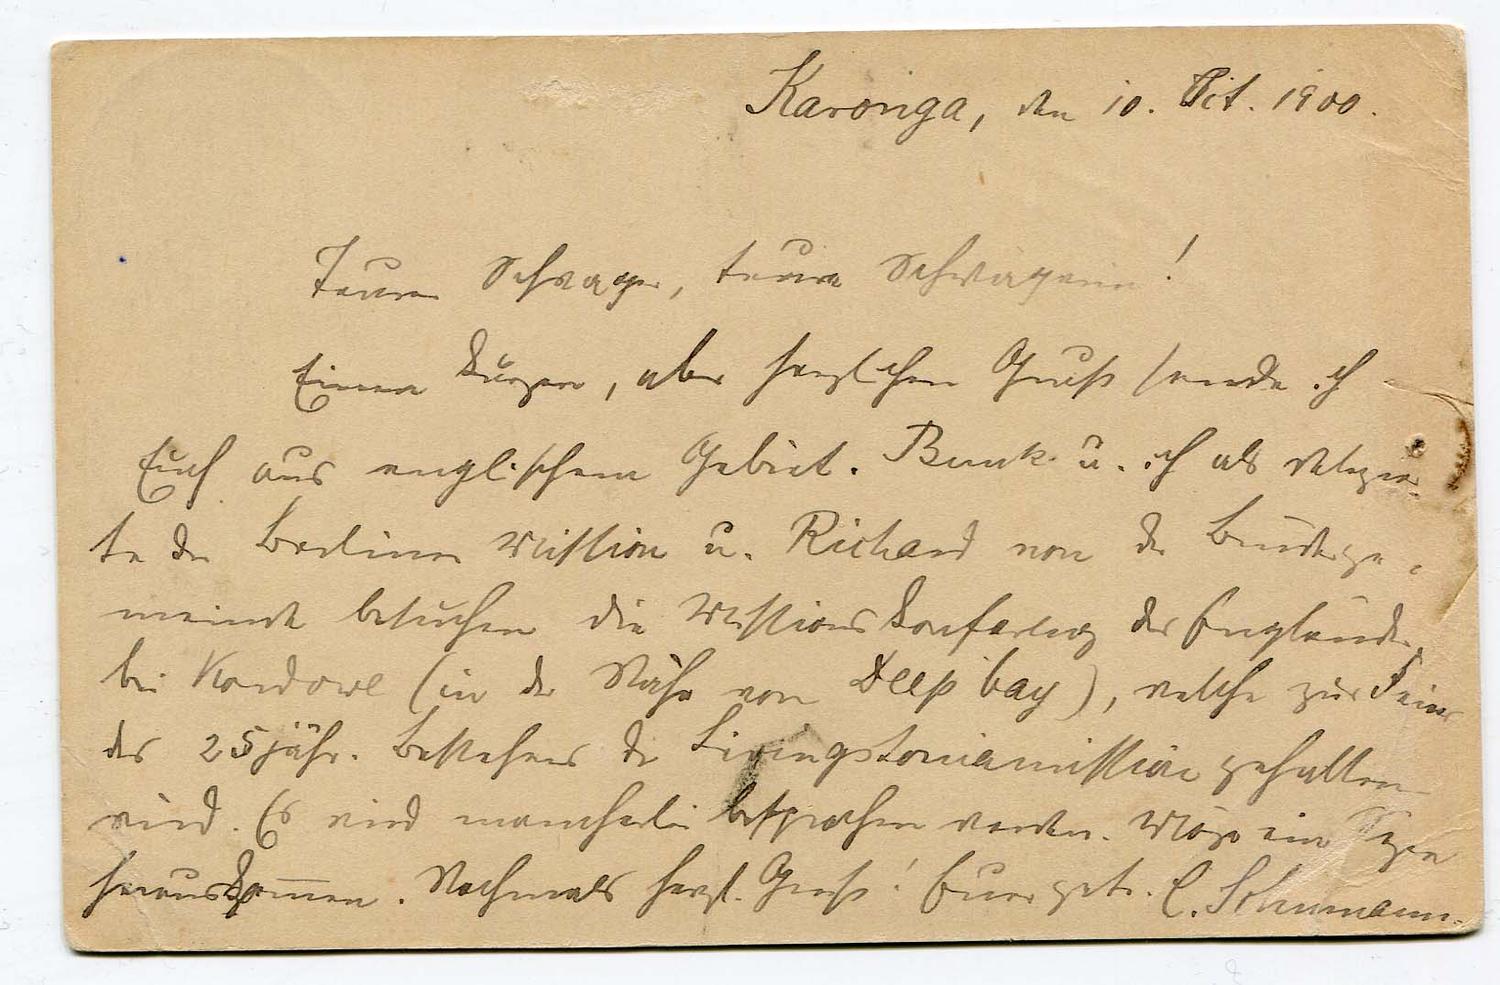 Karonga, den 10. Okt. 1900.
Teurer Schwager, teure Schwägerin!
Einen kurzen, aber herzlichen Gruß sende ich
Euch aus englischem Gebiet. Bunk u. ich als Delegier-
te der Berliner Mission u. Richard von der Brüderge-
meinde besuchen die Missionskonferenz der Engländer
bei Kondowe (in der Nähe von Deep bay), welche zur Feier
des 25jähr. Bestehens der Livingstoniamission gehalten
wird. Es wird mancherlei besprochen werden. Möge ein Segen
herauskommen. Nochmals herzl. Gruß! Euer getr. C. Schumann.